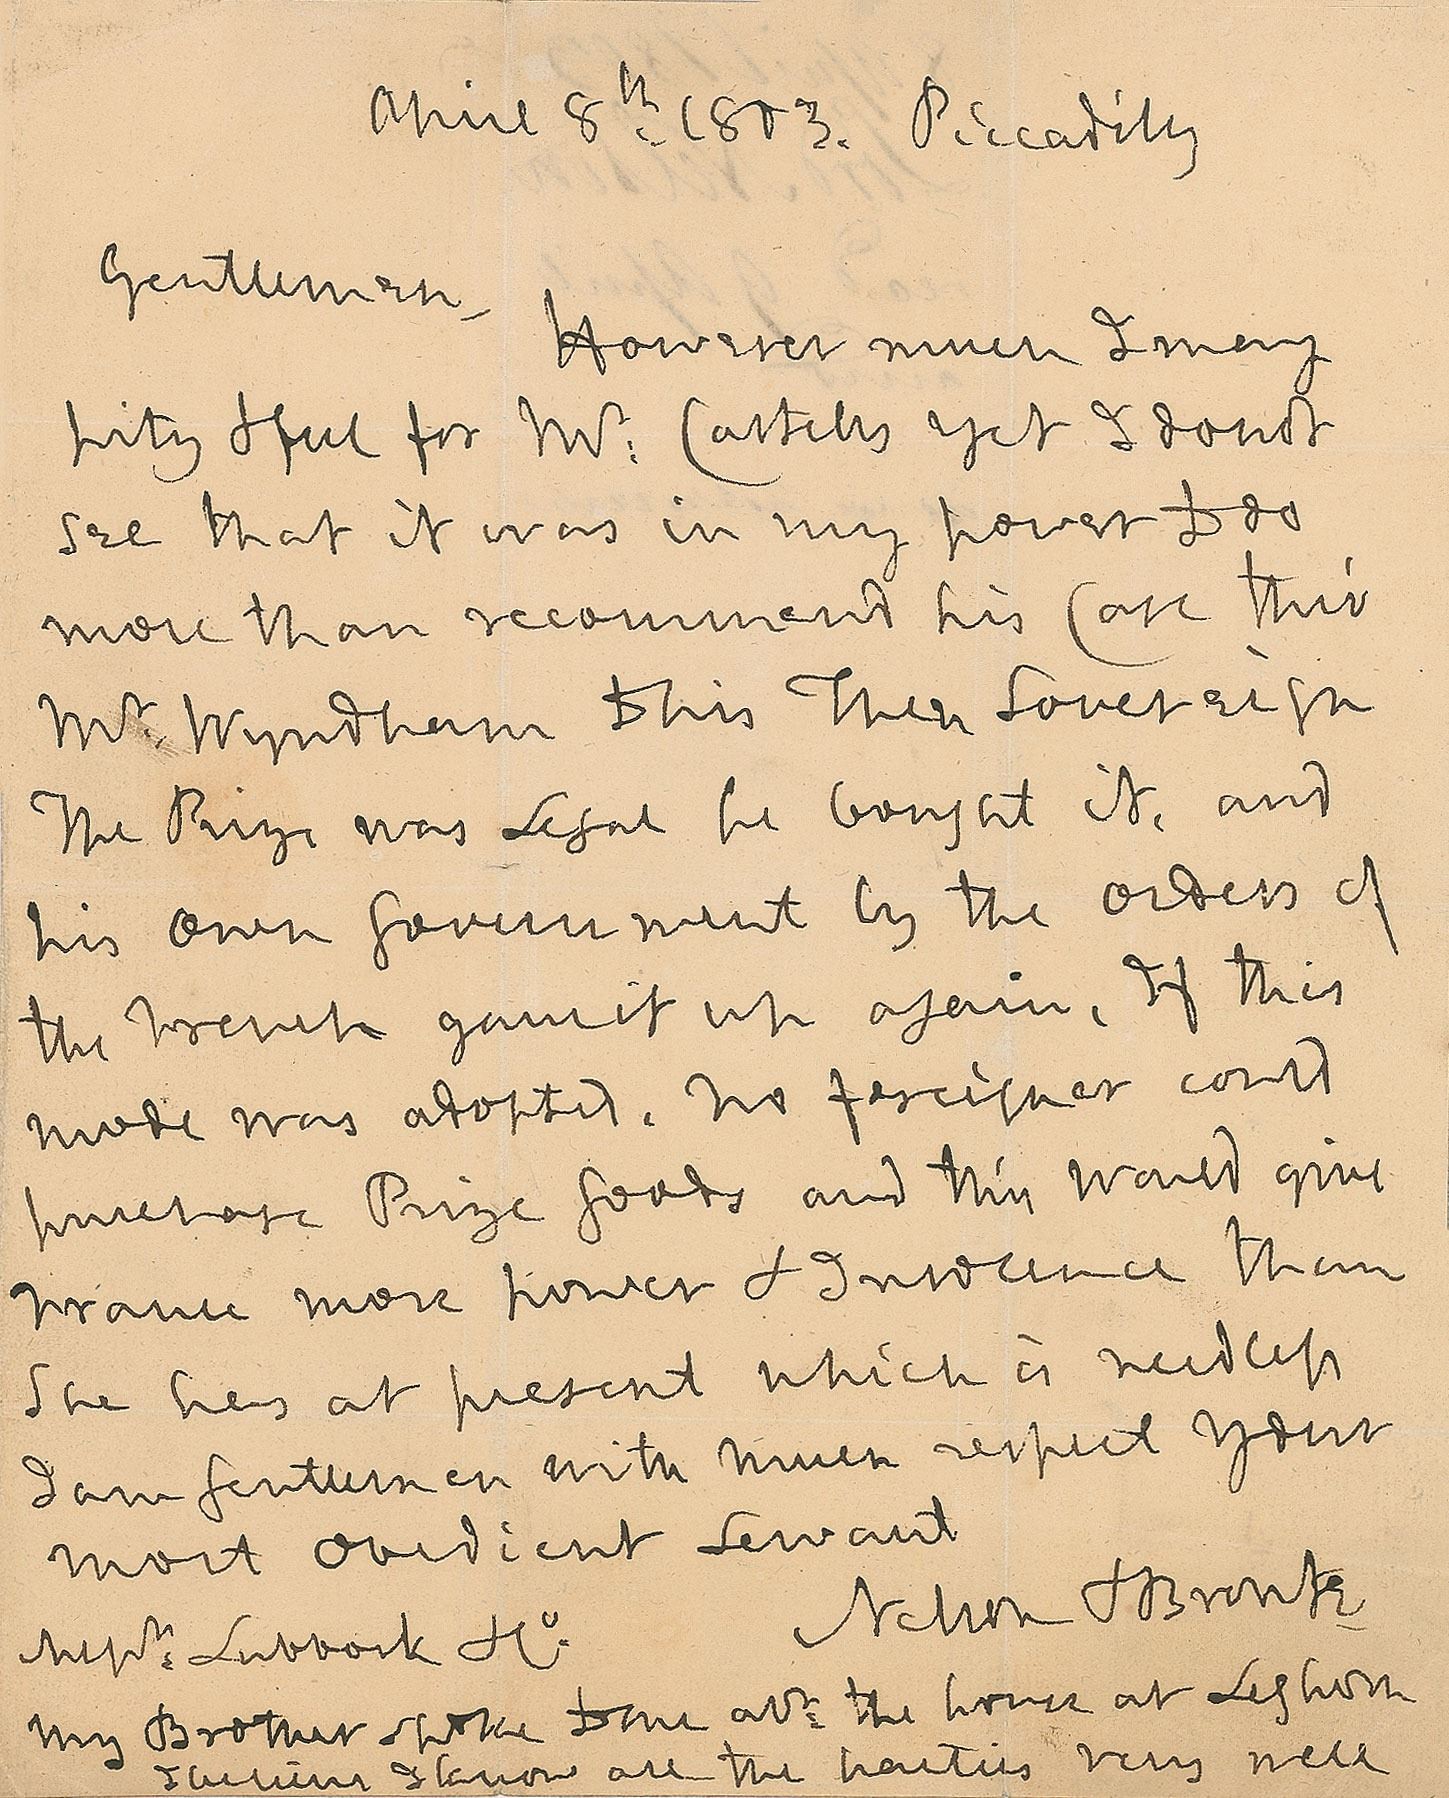 April 8th: 1803. Piccadilly
Gentlemen,
However much I may
pity & feel for Mr: Castelly yet I do not
see that it was in my power to do
more than recommend his Case thro'
Mr. Wyndham to his Then Sovereign
The Prize was Legal he bought it, and
his own Government by the orders of
the French gave it up again, If this
mode was adopted, no foreigner could
purchase Prize Goods and this would give
France more power & Insolence than
She has at present which is needless
I am Gentlemen with much respect Your
most obedient Servant
Nelson & Bronte
Messrs: Lubbock & Co:
My Brother spoke to me abt: the house at Leghorn
I know all the parties very well